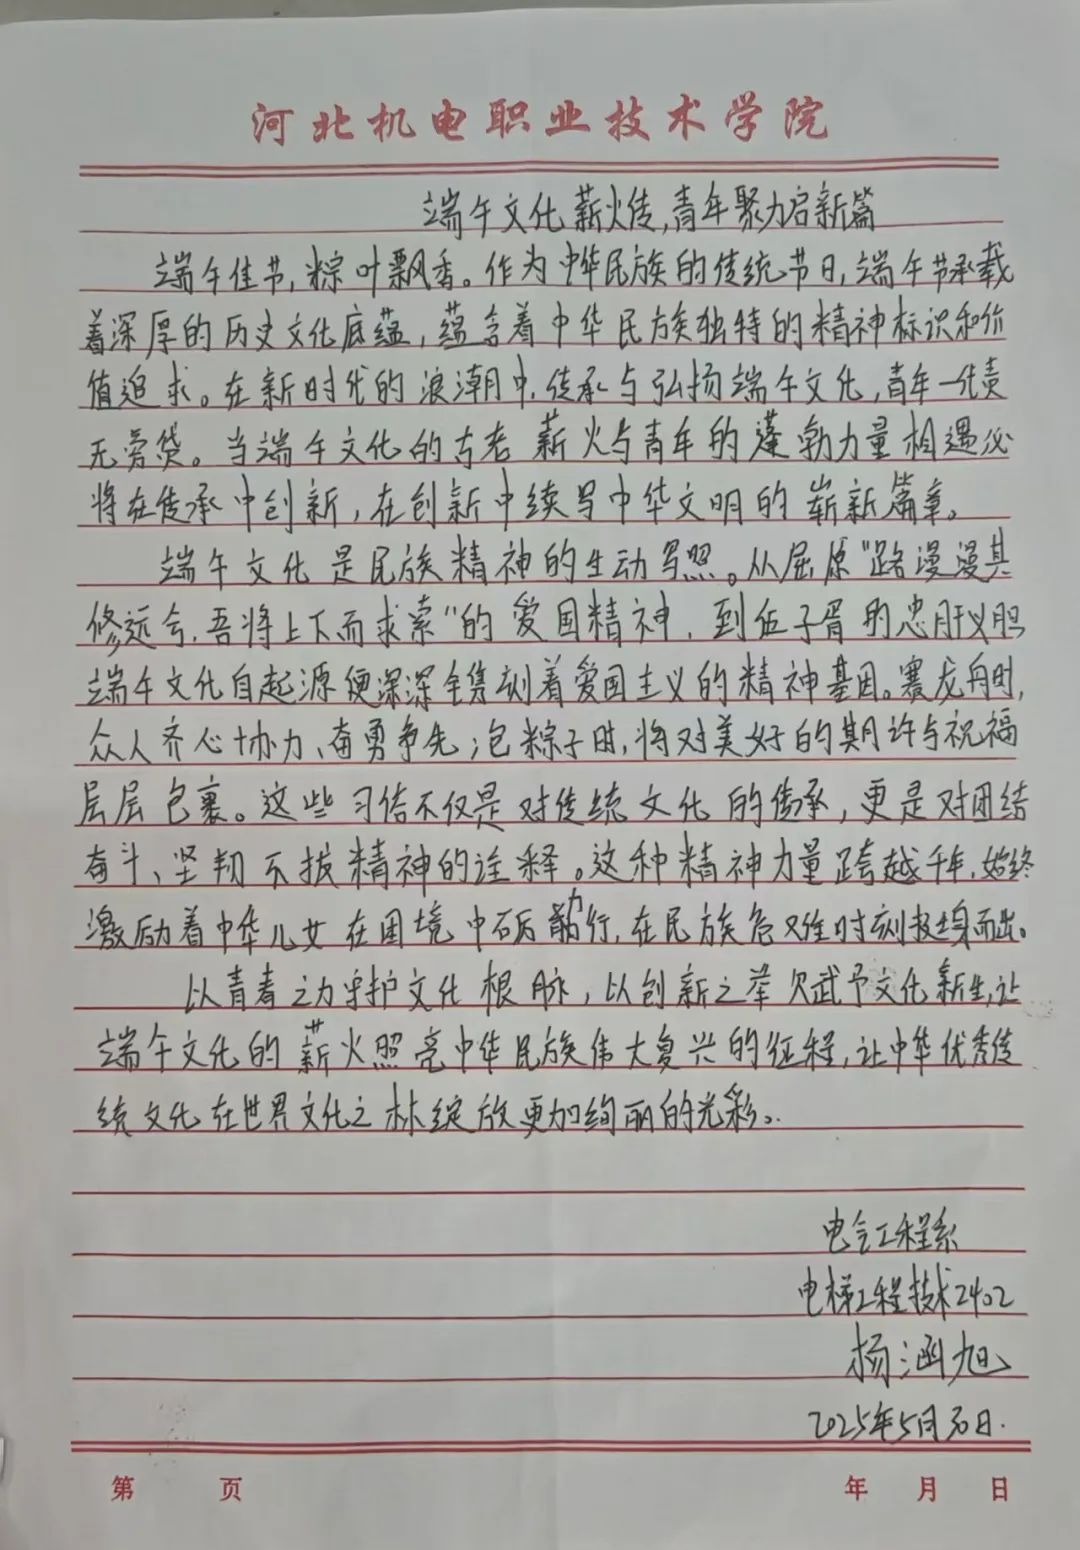 河北机电职业技术学院
端午文化薪火传,青年聚力启新篇
端午佳节,粽叶飘香。作为中华民族的传统节日,端午节承载
着深厚的历史文化底蕴,蕴含着中华民族独特的精神标识和价
值追求。在新时代的浪潮中,传承与弘扬端午文化,青年一代责
无旁贷。当端午文化的古老薪火与青年的蓬勃力量相遇必
将在传承中创新,在创新中续写中华文明的崭新篇章。
端午文化是民族精神的生动写照。从屈原"路漫漫其
修远兮,吾将上下而求索"的爱国精神,到伍子胥的忠肝义胆
端午文化自起源便深深镌刻着爱国主义的精神基因。赛龙舟时,
众人齐心协力、奋勇争先;包粽子时,将对美好的期许与祝福
层层包裹。这些习俗不仅是对传统文化的传承,更是对团结
奋斗、坚韧不拔精神的诠释。这种精神力量跨越千年,始终
激励着中华儿女在困境中砥砺前行,在民族危难时刻挺身而出。
以青春之力守护文化根脉,以创新之举赋予文化新生,让
端午文化的薪火照亮中华民族伟大复兴的征程,让中华优秀传
统文化在世界文化之林绽放更加绚丽的光彩。
电气工程系
电梯工程技术2402
杨涵旭
2025年5月30日.
第 页 年 月 日